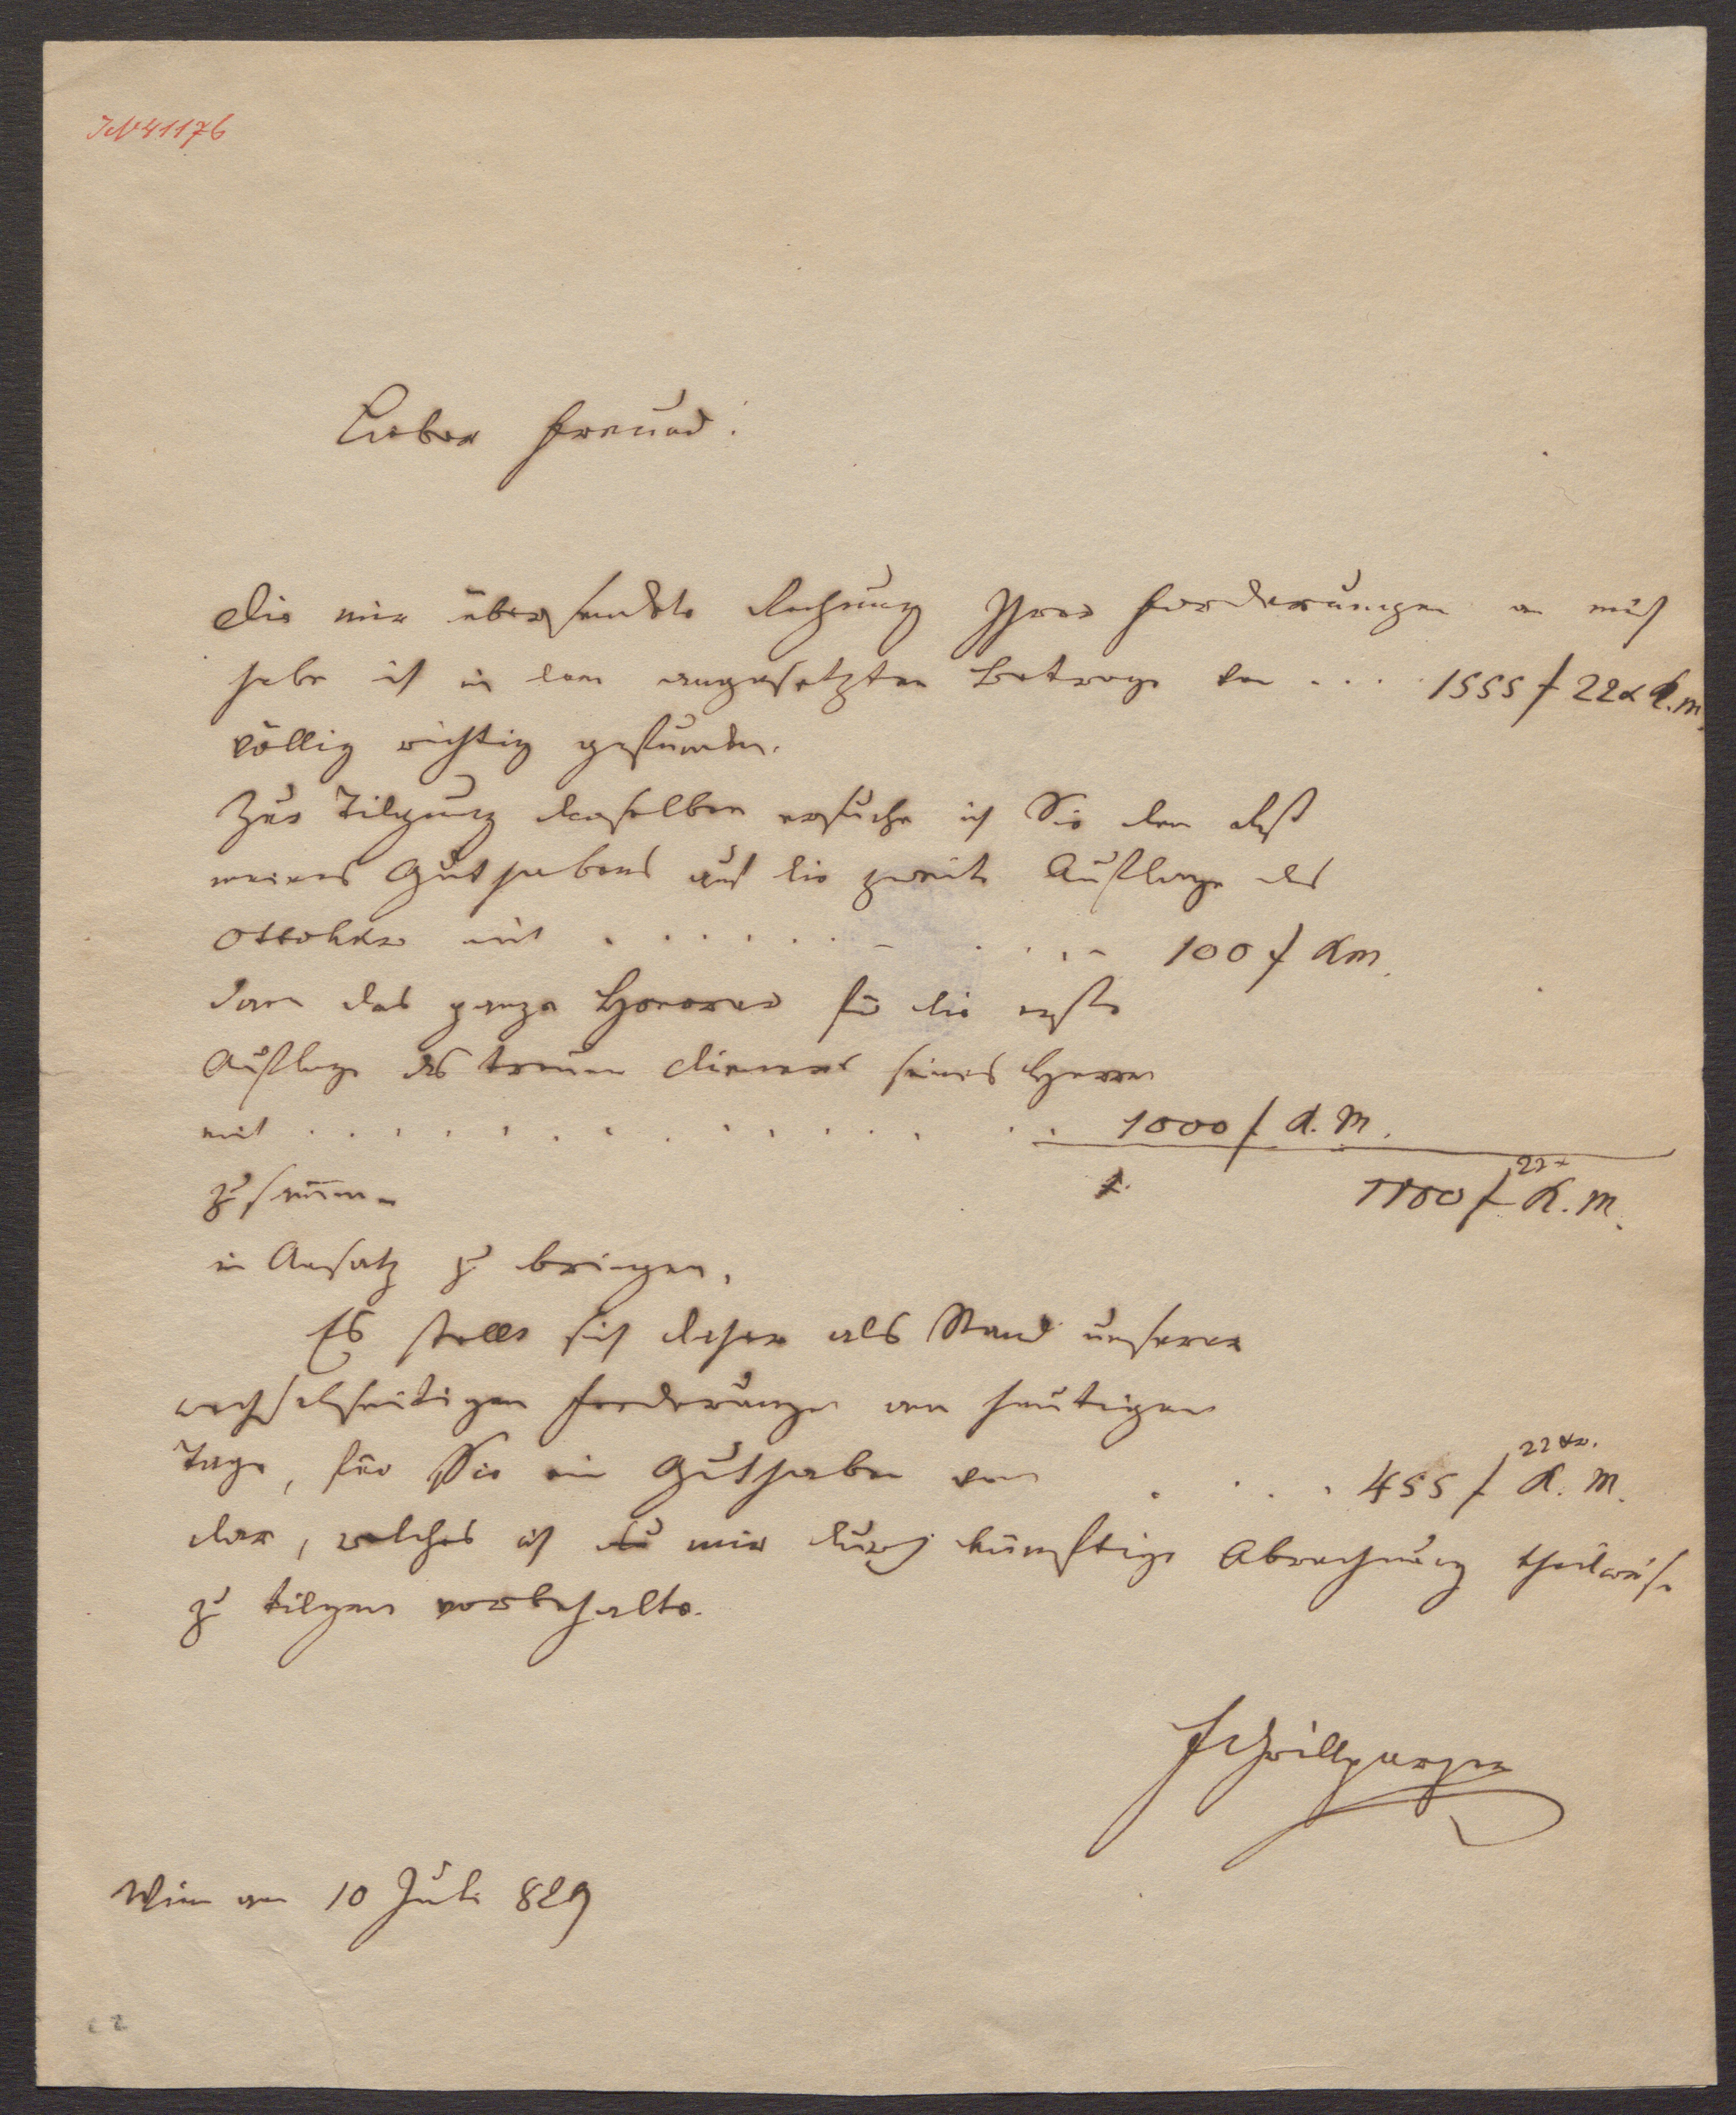 IN 41176
Lieber Freund!
Die mir übersendete Rechnung Ihrer Forderungen an mich
habe ich in dem angesetzten Betrage von . . . . 1555 f 22 x K.M.
völlig richtig gefunden.
Zur Tilgung derselben ersuche ich Sie den Rest
meines Guthabens auf die zweite Auflage des
Ottokar mit . . . . . . . . . . . 100 f KM.
dann das ganze Honorar für die erste
Auflage des treuen Dieners seines Herrn
mit . . . . . . . . . . . . . . 1000 f K.M.
zusammen 1100 f 22 x K.M.
in Ansatz zu bringen.
Es stellt sich daher als Stand unserer
wechselseitigen Forderungen am heutigen
Tage, für Sie ein Guthaben von . . . . 455 f 22 xr. K.M.
dar, welches ich mir durch künftige Abrechnung theilweise
zu tilgen vorbehalte.
F Grillparzer
Wien am 10 Juli 829